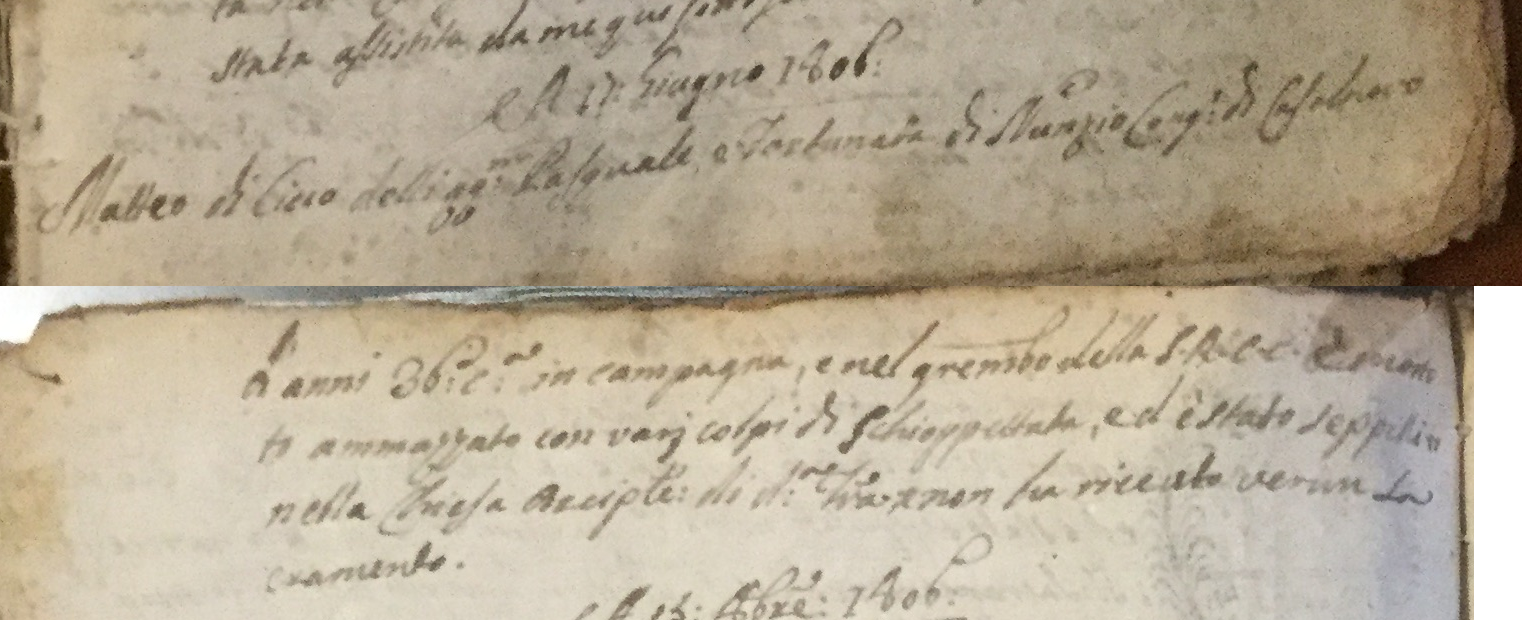 stata assistita da me
A 17: Giugno 1806:
Matteo di Cicco delli qq.m Pasquale, e Fortunata di Nunzio Conj: di Casalnovo
d'anni 36: c.a in campagna, e nel grembo della S. R. C. C. È mor
to ammazzato con varj colpi di Schioppettata, ed è stato seppelito
nella Chiesa Arciple: di d.a Tra. e non ha riceuto verun Sa
cramento.
A 8bre: 1806: